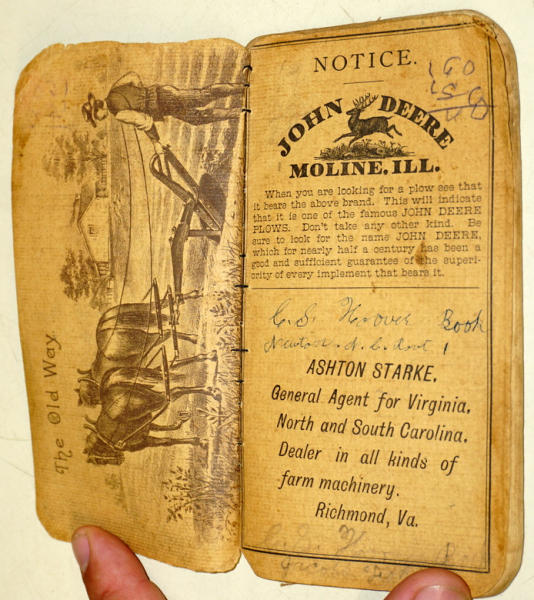 The Old Way.
NOTICE.
JOHN DEERE
MOLINE, ILL.
When you are looking for a plow see that
it bears the above brand. This will indicate
that it is one of the famous JOHN DEERE
PLOWS. Don't take any other kind. Be
sure to look for the name JOHN DEERE,
which for nearly half a century has been a
good and sufficient guarantee of the superi-
ority of every implement that bears it.
C. S. Hoover Book
Newton. N. C. Rout 1
ASHTON STARKE,
General Agent for Virginia,
North and South Carolina.
Dealer in all kinds of
farm machinery.
Richmond, Va.